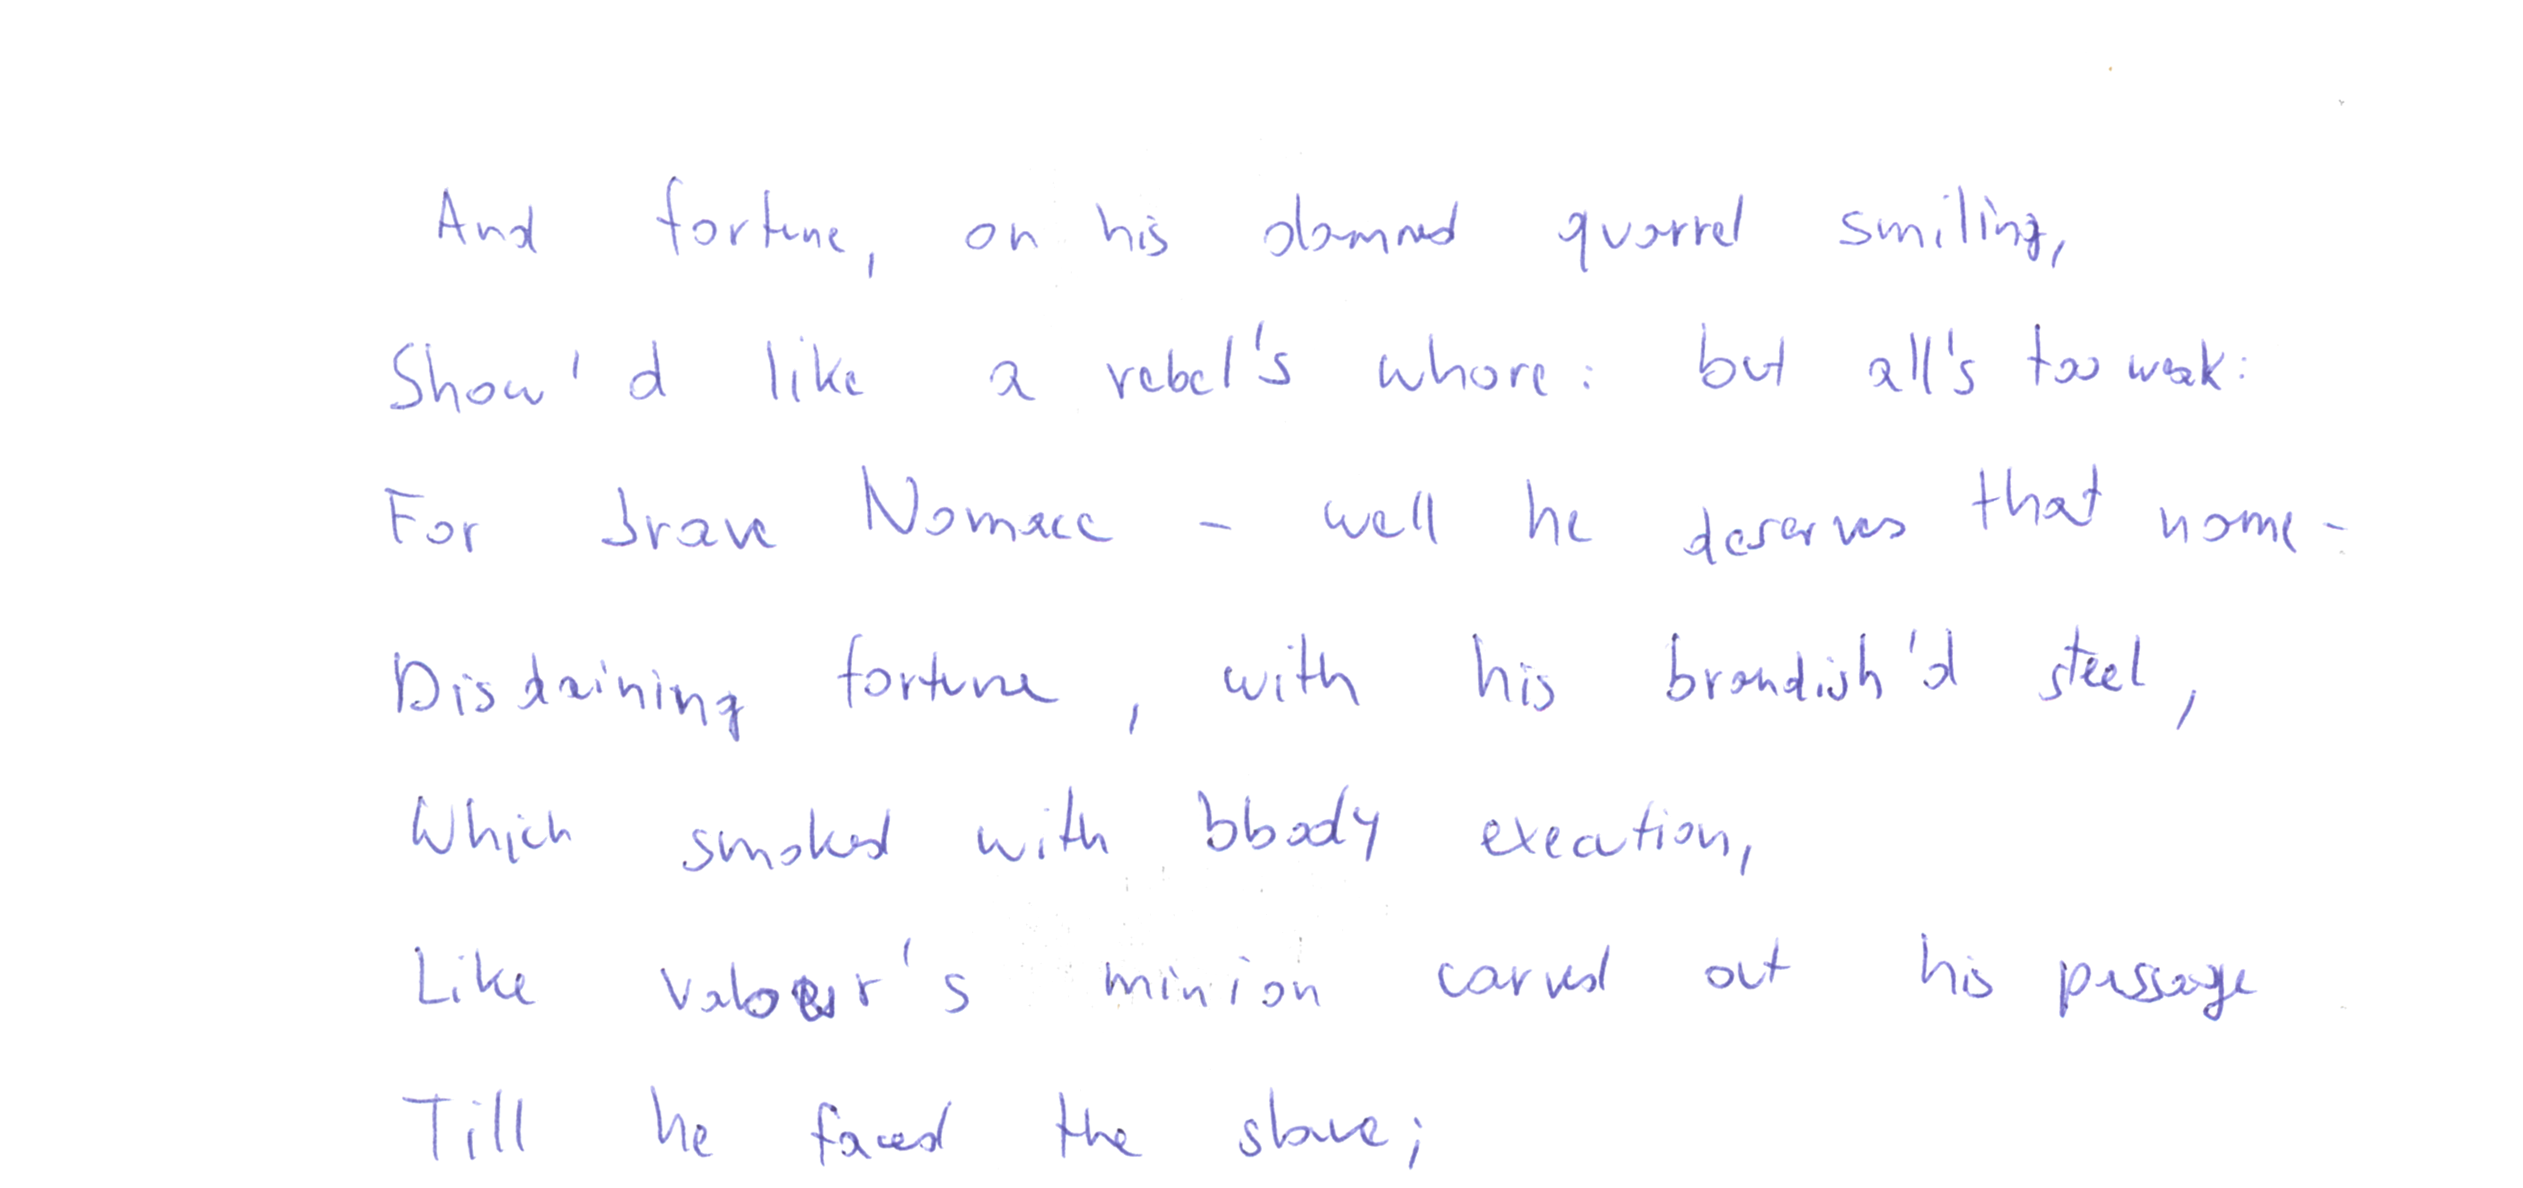 And fortune, on his damned quarrel smiling,
Show'd like a rebel's whore: but all's too weak:
For brave Nomacc - well he deserves that name -
Disdaining fortune, with his brandish'd steel,
Which smoked with bloody execution,
Like valour's minion carved out his passage
Till he faced the slave;